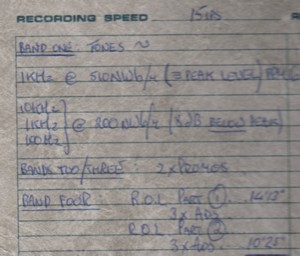 RECORDING SPEED 15 IPS
BAND ONE: TONES ~
1KHz @ 510NWb/M (≡ PEAK LEVEL)
10KHz
1KHz @ 200NWb/M (8dB BELOW PEAK)
100Hz
BANDS TWO/THREE: 2 x PROMOS
BAND FOUR: R.O.L PART 1.
3 x ADS.
R.O.L PART 2
3 x ADS. 10'25"